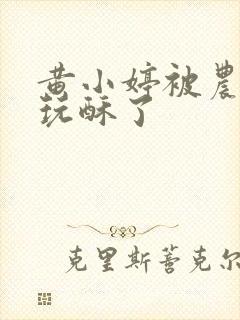 黄小婷被農
玩酥了
克里斯蒈克尔